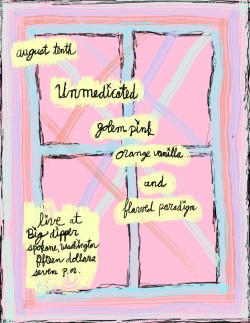 august tenth
Unmedicated
golem pink
orange vanilla
and
flawed paradigm
live at
Big dipper
spokane, washington
fifteen dollars
seven p.m.